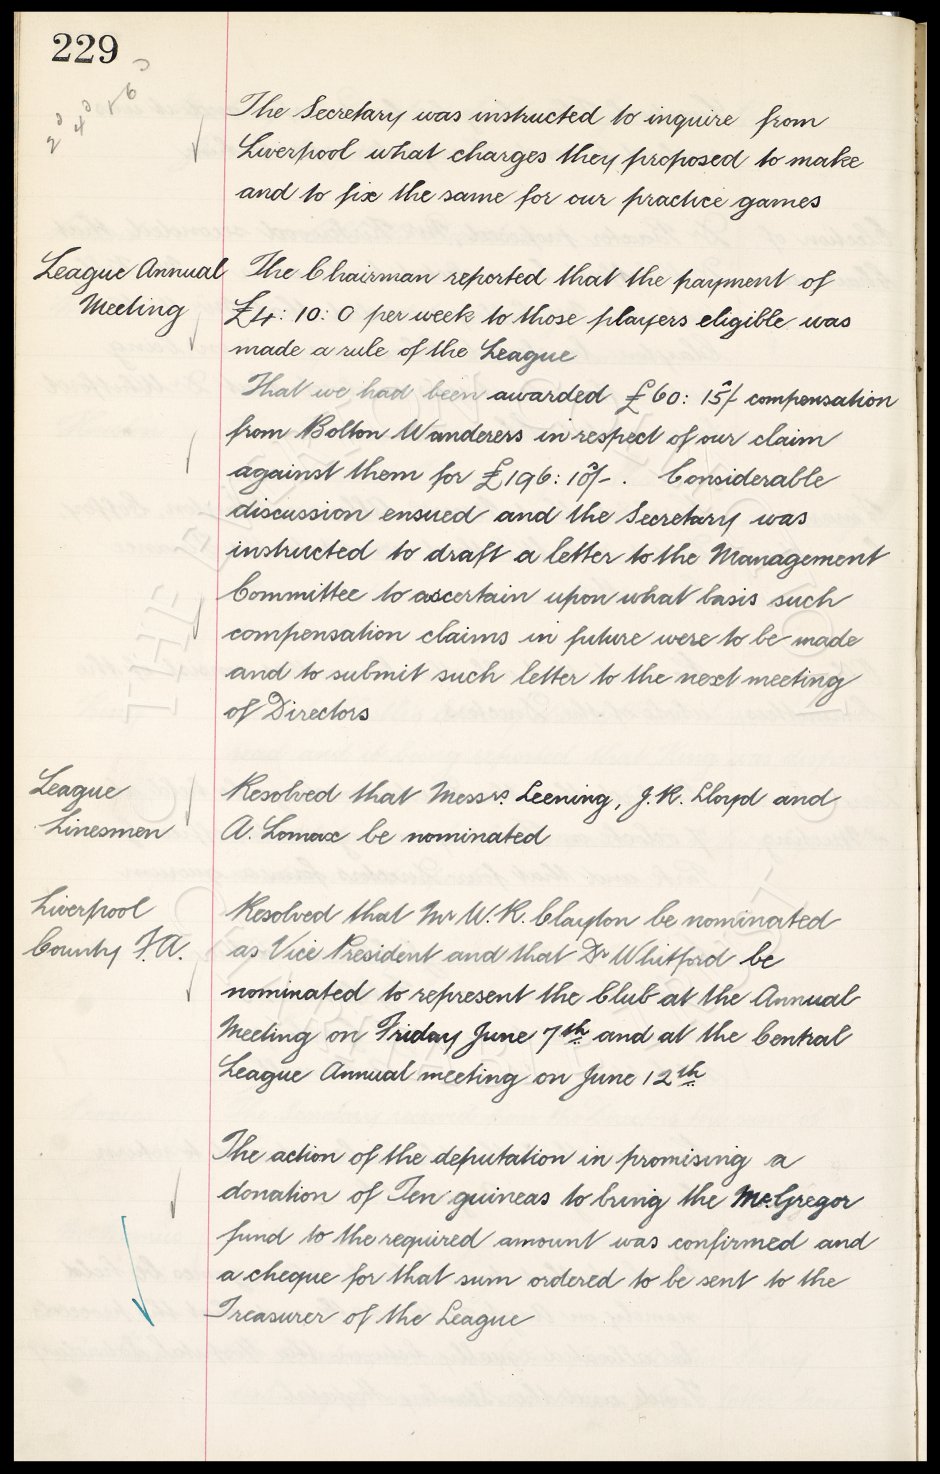 229
2d 4d & 6d
The Secretary was instructed to inquire from
Liverpool what charges they proposed to make
and to fix the same for our practice games
League Annual
Meeting
The Chairman reported that the payment of
£4: 10: 0 per week to those players eligible was
made a rule of the League
That we had been awarded £60: 15/- compensation
from Bolton Wanderers in respect of our claim
against them for £196: 10/-. Considerable
discussion ensued and the Secretary was
instructed to draft a letter to the Management
Committee to ascertain upon what basis such
compensation claims in future were to be made
and to submit such letter to the next meeting
of Directors
League
Linesmen
Resolved that Messrs. Leening, J. R. Lloyd and
A. Lomax be nominated
Liverpool
County F.A.
Resolved that Mr W. R. Clayton be nominated
as Vice President and that Dr Whitford be
nominated to represent the Club at the Annual
Meeting on Friday June 7th and at the Central
League Annual meeting on June 12th
The action of the deputation in promising a
donation of Ten guineas to bring the McGregor
fund to the required amount was confirmed and
a cheque for that sum ordered to be sent to the
Treasurer of the League